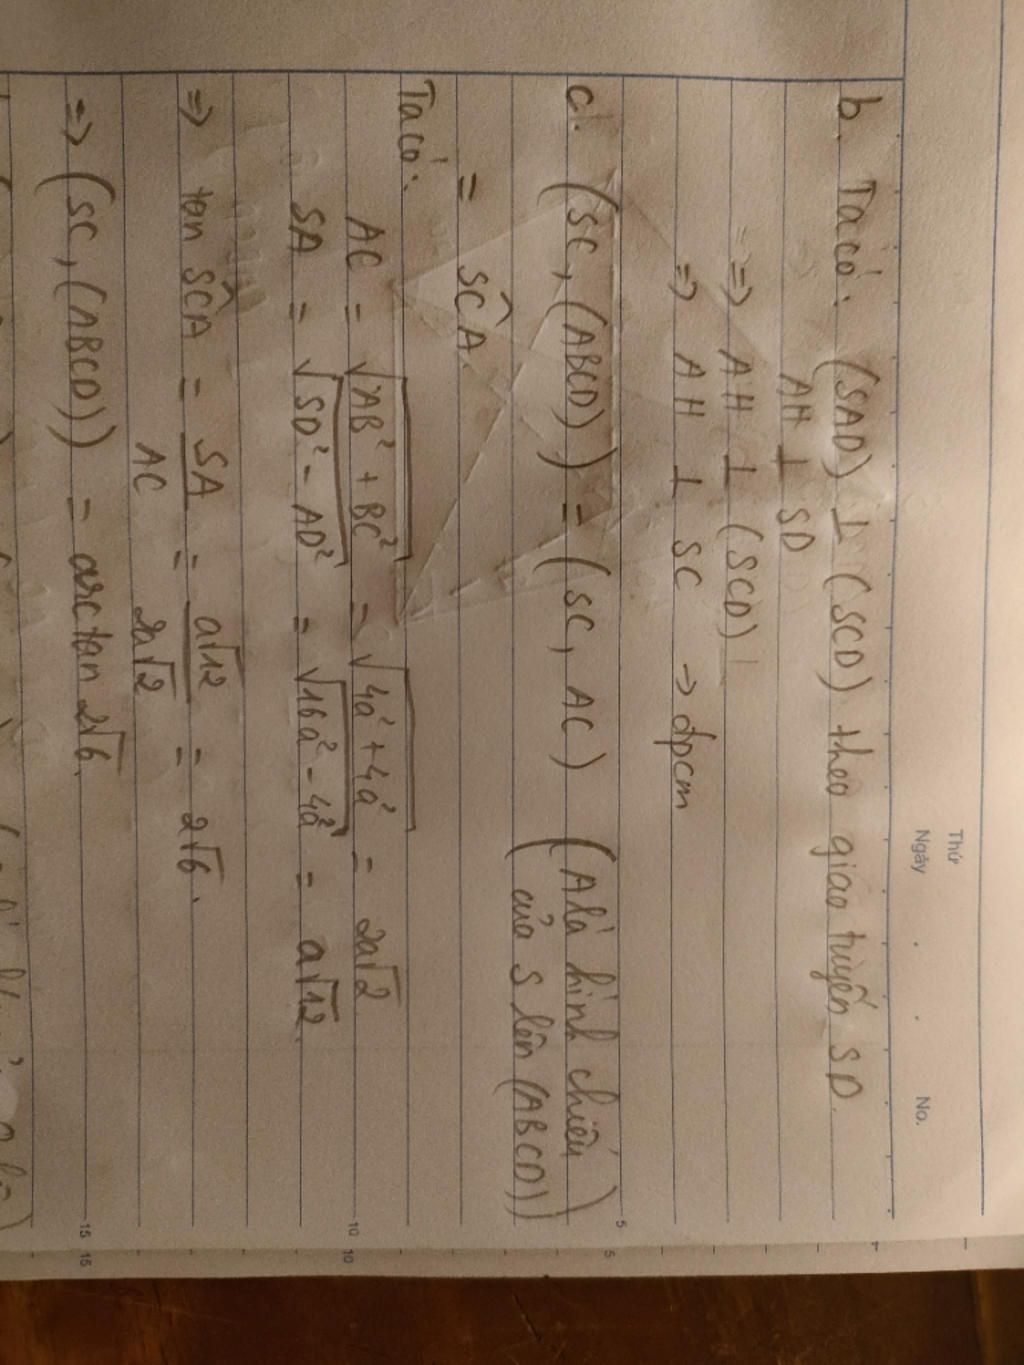 Thứ
Ngày . . No.
b. Ta có: (SAD) ⊥ (SCD) theo giao tuyến SD.
AH ⊥ SD
=> AH ⊥ (SCD)
=> AH ⊥ SC → đpcm
5 5
c. (SC, (ABCD)) = (SC, AC) (A là hình chiếu
của S lên (ABCD))
= SĈA
Ta có:
AC = √(AB² + BC²) = √(4a² + 4a²) = 2a√2
10 10
SA = √(SD² - AD²) = √(16a² - 4a²) = a√12.
=> tan SĈA = SA/AC = a√12/2a√2 = 2√6.
=> (SC, (ABCD)) = arctan 2√6.
15 15